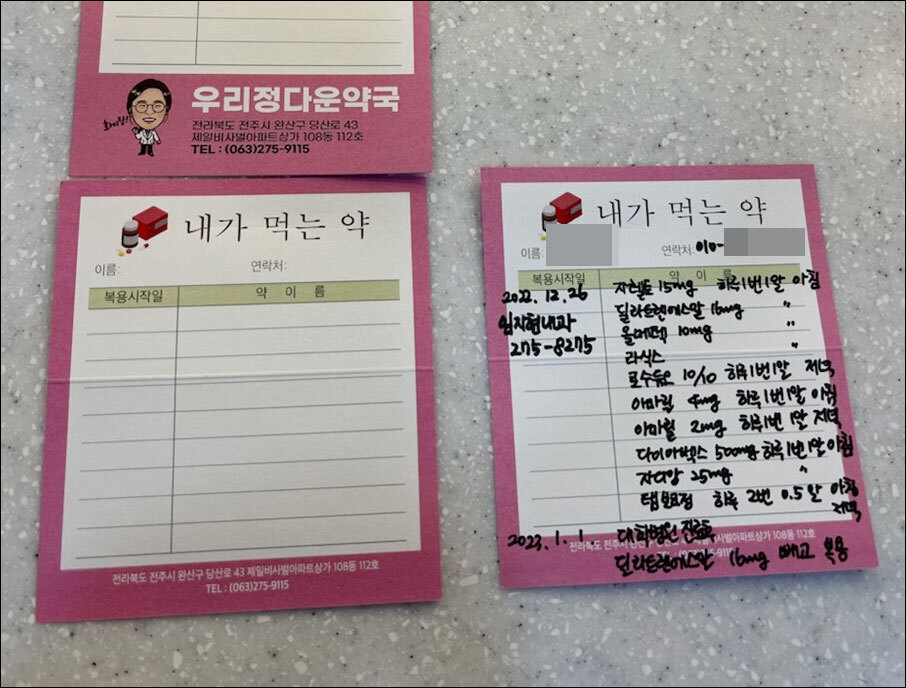 화이팅!
우리정다운약국
전라북도 전주시 완산구 당산로 43
제일비사벌아파트상가 108동 112호
TEL : (063)275-9115
내가 먹는 약
이름:
연락처:
복용시작일 약 이름
전라북도 전주시 완산구 당산로 43 제일비사벌아파트상가 108동 112호
TEL : (063)275-9115
내가 먹는 약
이름:
연락처: 010-
복용시작일 약 이름
2022. 12. 26 자렐토 15mg 하루1번1알 아침
딜라트렌에스알 16mg "
임지현내과 올메텍 10mg "
275-8275 라식스 "
로수듀오 10/10 하루1번1알 저녁
아마릴 4mg 하루1번1알 아침
아마릴 2mg 하루1번 1알 저녁
다이아벡스 500mg 하루1번1알 아침
자디앙 25mg "
템보요정 하루 2번 0.5알 아침
저녁
2023. 1. 1. 대학병원 진료후
전라북도 전주시 완산구 당산로 43 제일비사벌아파트상가 108동 112호
딜라트렌에스알 16mg 빼고 복용